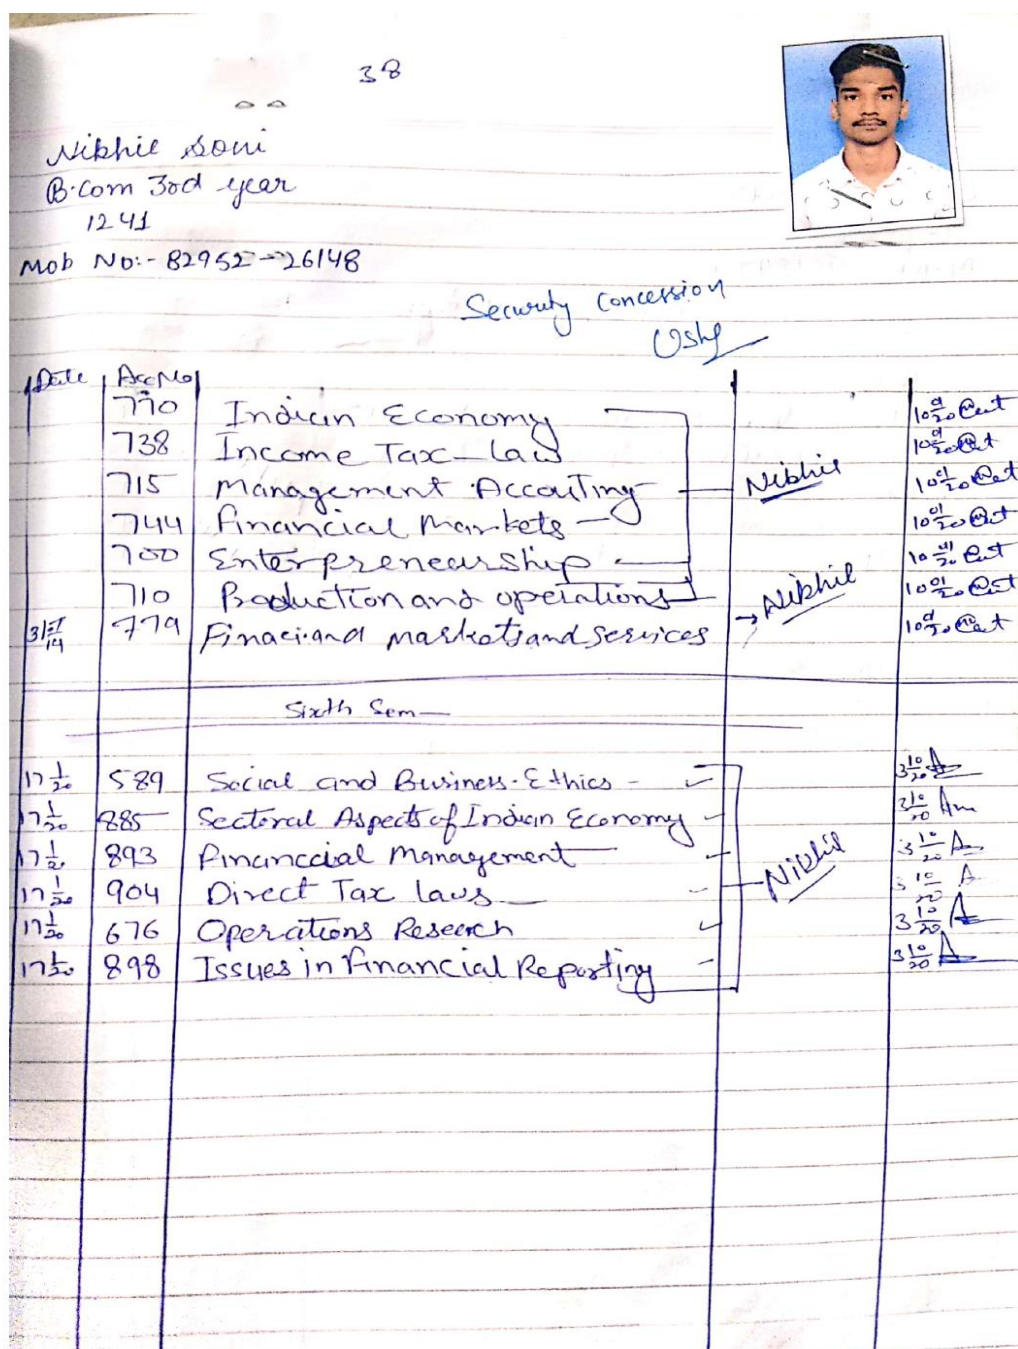 38
Nikhil Soni
B.Com 3rd year
1241
Mob No:- 82952-26148
Security Concession
Date Acc No
770 Indian Economy 10 9/20
738 Income Tax Law 10 9/20
715 Management Accouting Nikhil 10 9/20
744 Financial Markets 10 9/20
700 Enterpreneurship 10 9/20
710 Production and operations Nikhil 10 9/20
779 markets and services 10 9/20
Sixth Sem
17 1/20 589 Social and Business Ethics 3 10/20
17 1/20 885 Sectoral Aspects of Indian Economy 3 10/20
17 1/20 893 Financial Management 3 10/20
17 1/20 904 Direct Tax laws Nikhil 3 10/20
17 1/20 676 Operations Research 3 10/20
17 1/20 898 Issues in Financial Reporting 3 10/20